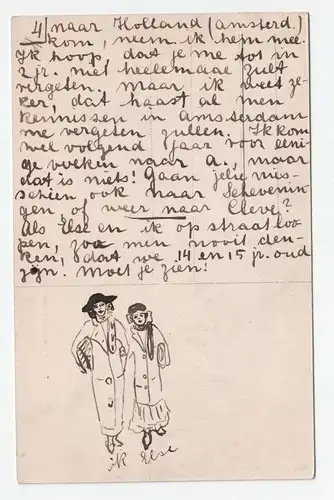 4/ naar Holland (amsterd.)
kom, neem ik hem mee.
Ik hoop, dat je me tot in
2 jr. niet heelemaal zult
vergeten. Maar ik weet ze-
ker, dat haast al men
kennissen in Amsterdam
me vergeten zullen. Ik kom
wel volgend jaar voor eeni-
ge weeken naar A., maar
dat is niets! Gaan jelie mis-
schien ook naar Schevenin-
gen of weer naar Cleve?
Als Else en ik op straat loo-
pen, zou men nooit den-
ken, dat we 14 en 15 jr. oud
zijn. Moet je zien!
ik Else